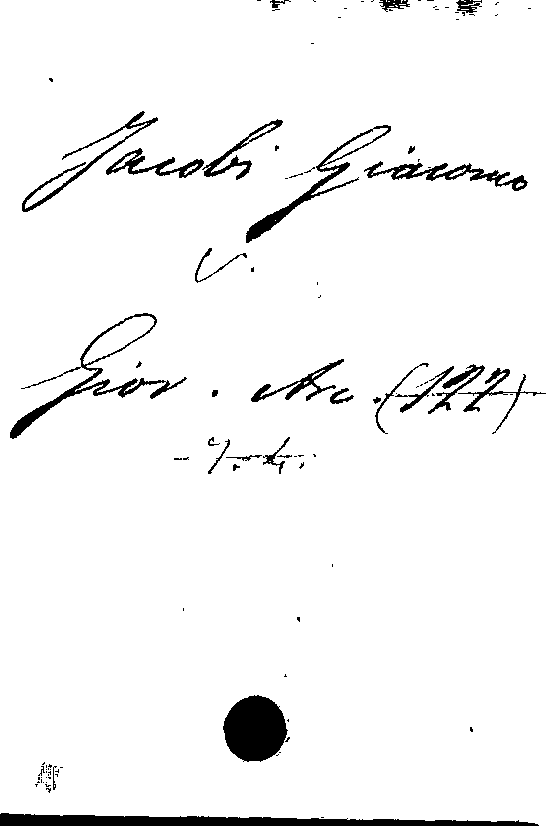 Jacobi Giacomo
v.
Giov. Arc. (122)